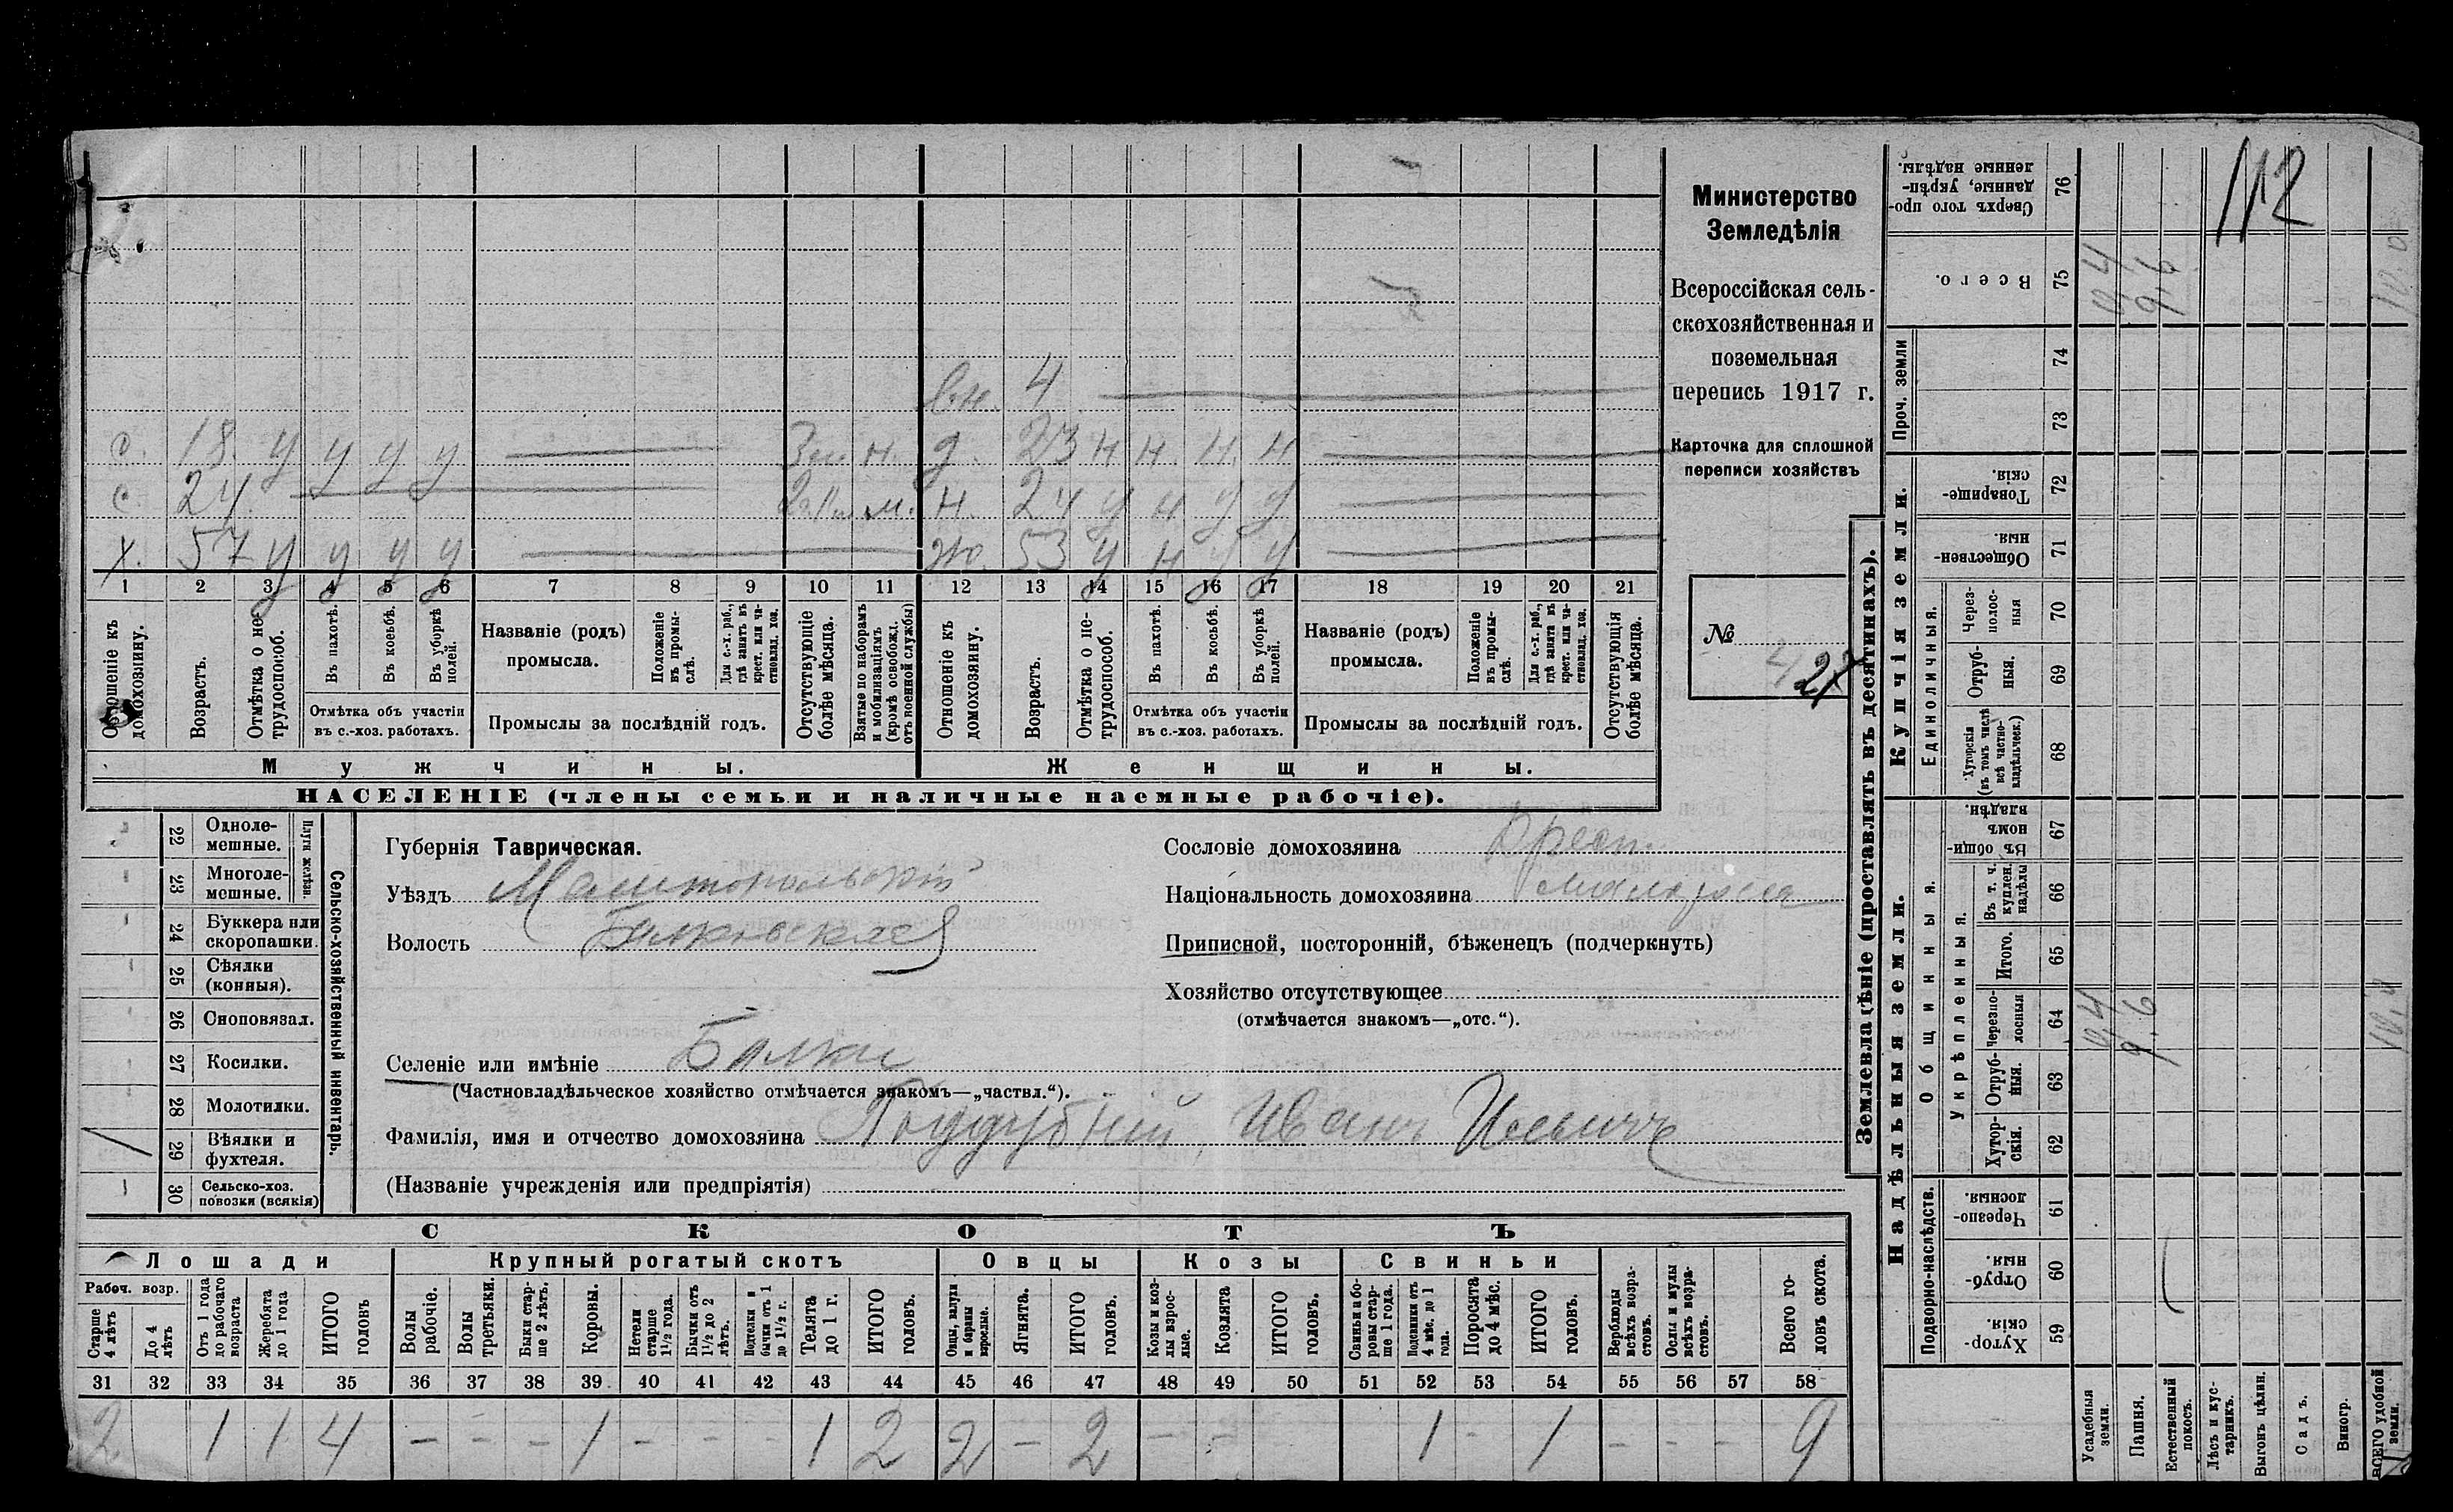 112
Министерство
Земледѣлія
Всероссійская сель-
скохозяйственная и
поземельная
перепись 1917 г.
Карточка для сплошной
переписи хозяйствъ
№
27
вн. 4
с. 18. у у у у н. д. 23 н н. н. н
с. 24 м. н. 24 у н у у
х. 57 у у у у жо. 53 у н у у
1 2 3 4 5 6 7 8 9 10 11 12 13 14 15 16 17 18 19 20 21
Отношеніе къ домохозяину.
Возрастъ.
Отмѣтка о не-трудоспособ.
Въ пахотѣ.
Въ косьбѣ.
Въ уборкѣ полей.
Отмѣтка объ участіи
въ с.-хоз. работахъ.
Названіе (родъ)
промысла.
Положеніе въ промы-слѣ.
Для с.-х. раб., гдѣ занятъ въ крест. или ча-стновлад. хоз.
Промыслы за послѣдній годъ.
Отсутствующіе болѣе мѣсяца.
Взятые по наборамъ и мобилизаціямъ (кромѣ освобожд. отъ военной службы)
Отношеніе къ домохозяину.
Возрастъ.
Отмѣтка о не-трудоспособ.
Въ пахотѣ.
Въ косьбѣ.
Въ уборкѣ полей.
Отмѣтка объ участіи
въ с.-хоз. работахъ.
Названіе (родъ)
промысла.
Положеніе въ промы-слѣ.
Для с.-х. раб., гдѣ занята въ крест. или ча-стновлад. хоз.
Промыслы за послѣдній годъ.
Отсутствующія болѣе мѣсяца.
Мужчины. Женщины.
НАСЕЛЕНІЕ (члены семьи и наличные наемные рабочіе).
Сельско-хозяйственный инвентарь.
Плуги желѣзн.
22 Одноле-мешные.
23 Многоле-мешные.
24 Буккера или скоропашки.
25 Сѣялки (конныя).
26 Сноповязал.
27 Косилки.
28 Молотилки.
/ 29 Вѣялки и фухтеля.
30 Сельско-хоз. повозки (всякія)
Губернія Таврическая.
Уѣздъ Мелитопольскій
Волость Балковская
Селеніе или имѣніе Балки
(Частновладѣльческое хозяйство отмѣчается знакомъ—„частвл.“).
Фамилія, имя и отчество домохозяина Поддубній Иванъ Ильичъ
(Названіе учрежденія или предпріятія)
Сословіе домохозяина Крест.
Національность домохозяина малорос
Приписной, посторонній, бѣженецъ (подчеркнуть)
Хозяйство отсутствующее
(отмѣчается знакомъ—„отс.“).
СКОТЪ
Лошади Крупный рогатый скотъ Овцы Козы Свиньи
Рабоч. возр.
Старше 4 лѣтъ
До 4 лѣтъ
Отъ 1 года до рабочаго возраста
Жеребята до 1 года
ИТОГО головъ
Волы рабочіе.
Волы третьяки.
Быки стар-ше 2 лѣтъ.
Коровы.
Нетели старше 1½ года.
Бычки отъ 1½ до 2 лѣтъ.
Подтелки и бычки отъ 1 до 1½ г.
Телята до 1 г.
ИТОГО головъ.
Овцы, валухи и бараны взрослые.
Ягнята.
ИТОГО головъ.
Козы и коз-лы взрос-лые.
Козлята
ИТОГО головъ.
Свиньи и бо-ровы стар-ше 1 года.
Подсвинки отъ 4 мѣс. до 1 года.
Поросята до 4 мѣс.
ИТОГО головъ.
Верблюды всѣхъ возра-стовъ.
Ослы и мулы всѣхъ возра-стовъ.
Всего го-ловъ скота.
31 32 33 34 35 36 37 38 39 40 41 42 43 44 45 46 47 48 49 50 51 52 53 54 55 56 57 58
2 1 1 4 - - - 1 - - - 1 2 2 - 2 - - 1 - 1 - - - 9
Землевладѣніе (проставлять въ десятинахъ).
Надѣльныя земли.
Купчія земли.
Проч. земли
Подворно-наслѣдств.
Общинныя.
Укрѣпленныя.
Единоличныя.
Сверхъ того про-данные, укрѣп-ленные надѣлы. 76
Всего. 75 0,4 9,6 10.0
74
73
Товарище-скія. 72
Обществен-ныя. 71
Через-полос-ныя 70
Отруб-ныя. 69
Хуторскія (въ томъ числѣ всѣ частно-владѣльческ.) 68
Въ общин-номъ владѣн. 67
Въ т. ч. куплен. надѣлы 66
Итого. 65
Черезпо-лосныя 64 0,4 9,6
Отруб-ныя. 63
Хутор-скія. 62
Черезпо-лосныя. 61
Отруб-ныя. 60
Хутор-скія. 59
Усадебныя земли.
Пашня.
Естественный покосъ.
Лѣсъ и кус-тарникъ.
Выгонъ цѣлин.
Садъ.
Виногр.
ВСЕГО удобной земли.